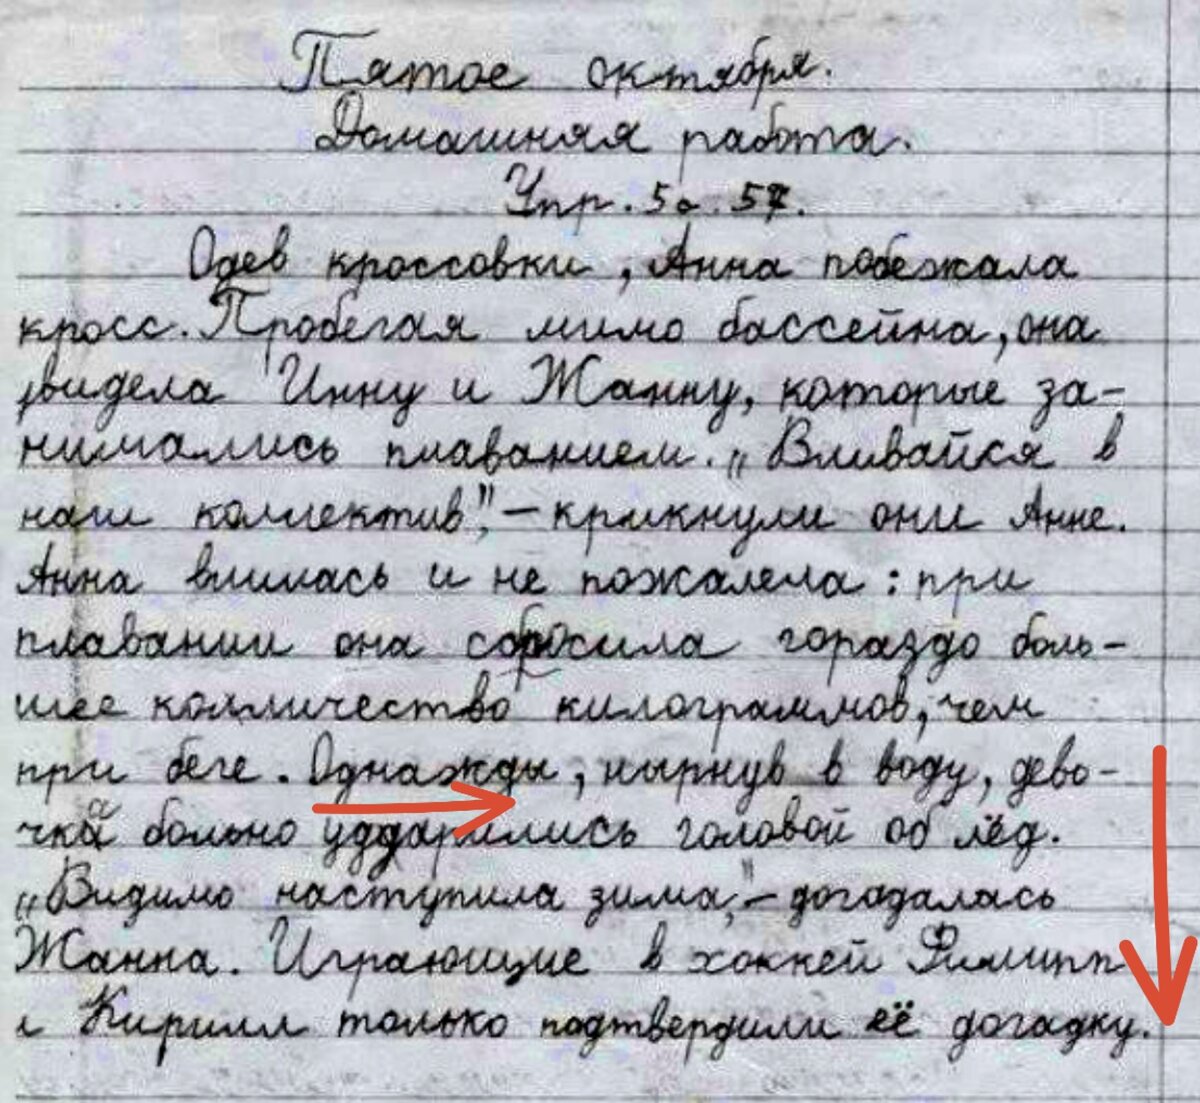 Пятое октября.
Домашняя работа.
Упр. 5а. 57.
Одев кроссовки, Анна побежала
кросс. Пробегая мимо бассейна, она
увидела Инну и Жанну, которые за-
нимались плаванием. „Вливайся в
наш коллектив", – крикнули они Анне.
Анна влилась и не пожалела: при
плавании она сбросила гораздо боль-
шее колличество килограммов, чем
при беге. Однажды, нырнув в воду, дево-
чка больно уддарились головой об лёд.
„Видимо наступила зима", – догадалась
Жанна. Играющие в хоккей Филипп
и Кирилл только подтвердили её догадку.